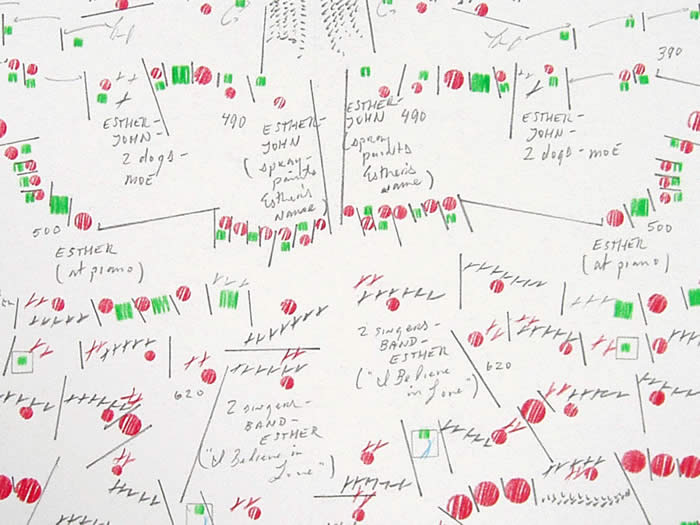 390
490
ESTHER-
JOHN-
2 dogs-
MOE
ESTHER-
JOHN
(spray-
paints
Esther's
Name)
ESTHER-
JOHN
490
(spray
paints
Esther's
Name)
ESTHER-
JOHN-
2 dogs-MOE
500
ESTHER
(at piano)
500
ESTHER
(at piano)
2 SINGERS-
BAND-
ESTHER
("I Believe
in Love")
620
620
2 singers-
BAND-
ESTHER
("I Believe in
Love")